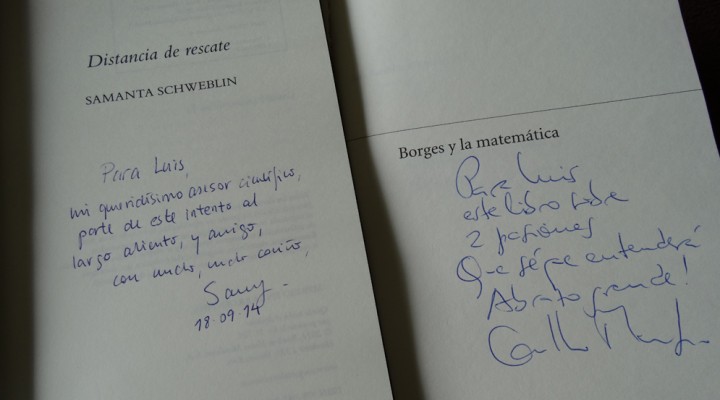 Distancia de rescate
SAMANTA SCHWEBLIN
Para Luis,
mi queridísimo asesor científico,
parte de este intento al
largo aliento, y amigo,
con mucho, mucho cariño,
Samy.
18.09.14
Borges y la matemática
Para Luis,
este libro sobre
2 pasiones
Que sé que entenderá
Abrazo grande!